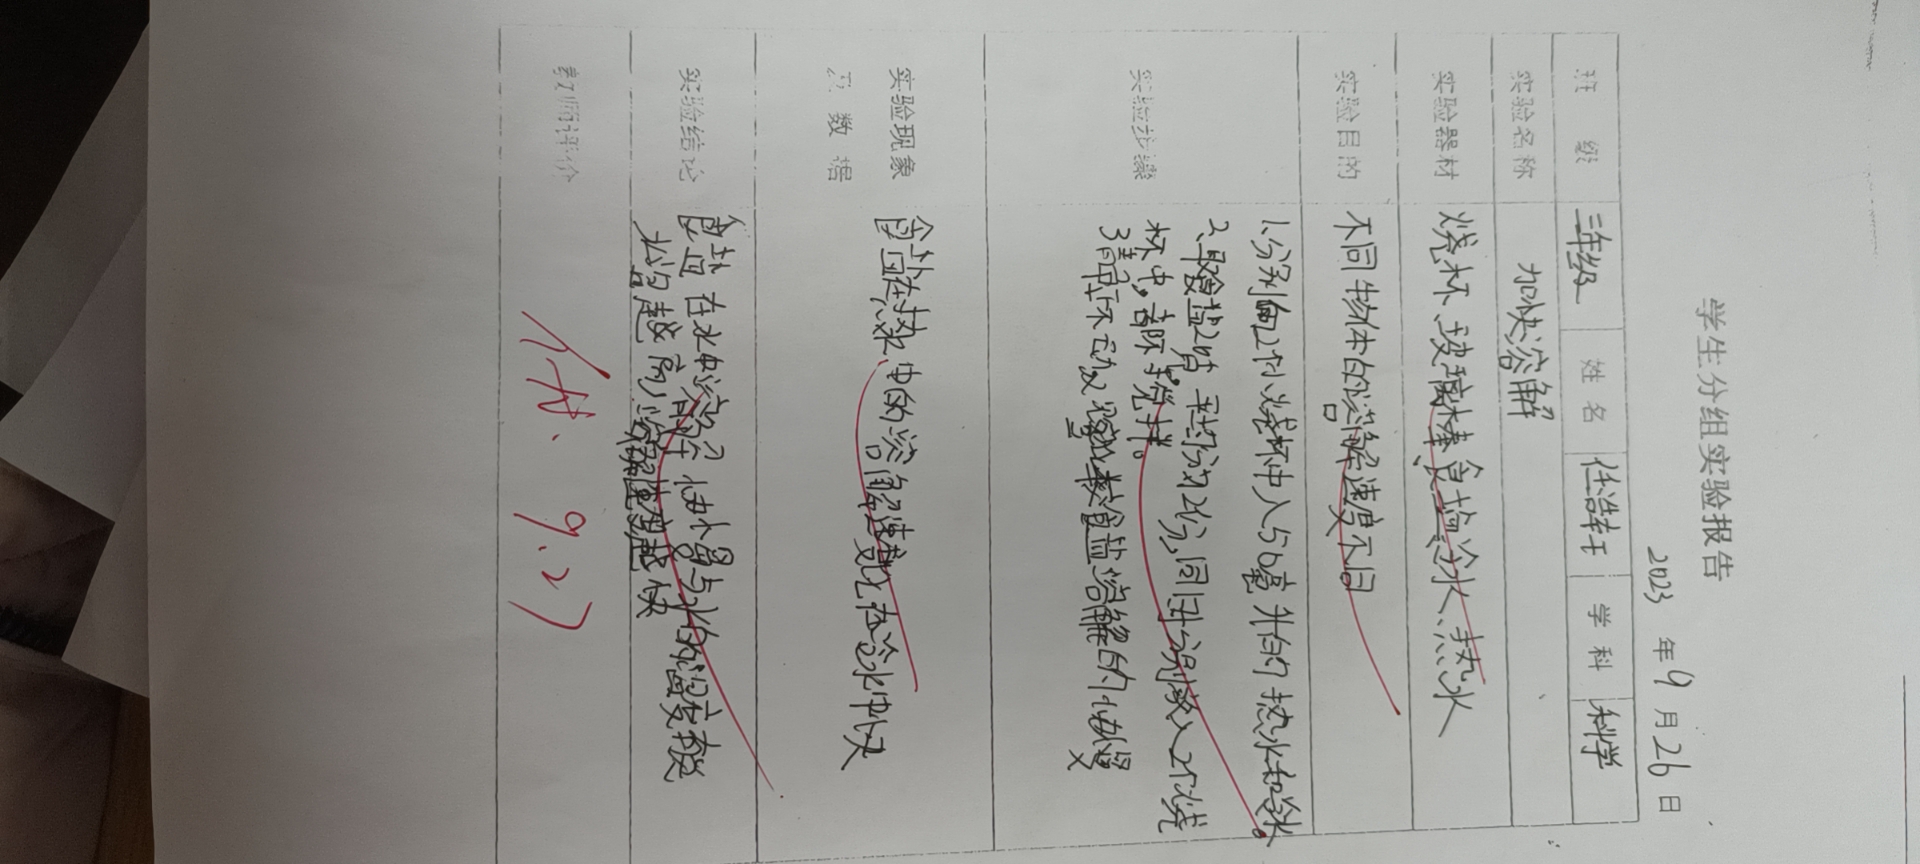 学生分组实验报告
2023 年 9 月 26 日
班 级 三年级 姓 名 任浩轩 学 科 科学
实验名称 加快溶解
实验器材 烧杯、玻璃棒、食盐、冷水、热水
实验目的 不同物体的溶解速度不同
实验步骤
1.分别向2个烧杯中入50毫升的热水和冷水。
2.取食盐2勺 平均分为2份,同时分别放入2个烧
杯中,音际搅拌。
3 食盐溶解的快慢
实验现象
及 数 据
食盐在热水中的溶解速度比在冷水中快
实验结论
食盐在水中溶解 快慢与水的温度有关
水温越高,溶解速度越快
教师评价
优. 9.27